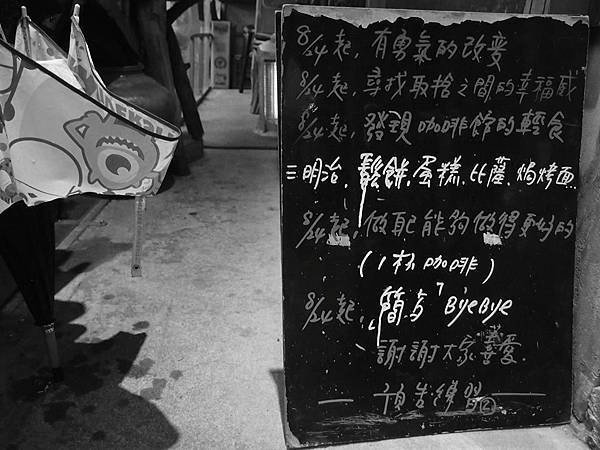 8/24起, 有勇氣的改變
8/24起, 尋找取捨之間的幸福感
8/24起, 發現咖啡館的輕食
三明治. 鬆餅. 蛋糕. 比薩. 焗烤面
8/24起, 做配能夠做得更好的
(1杯咖啡)
8/24起, 「簡與」ByeBye
謝謝大家喜愛.
— 預告練習② —